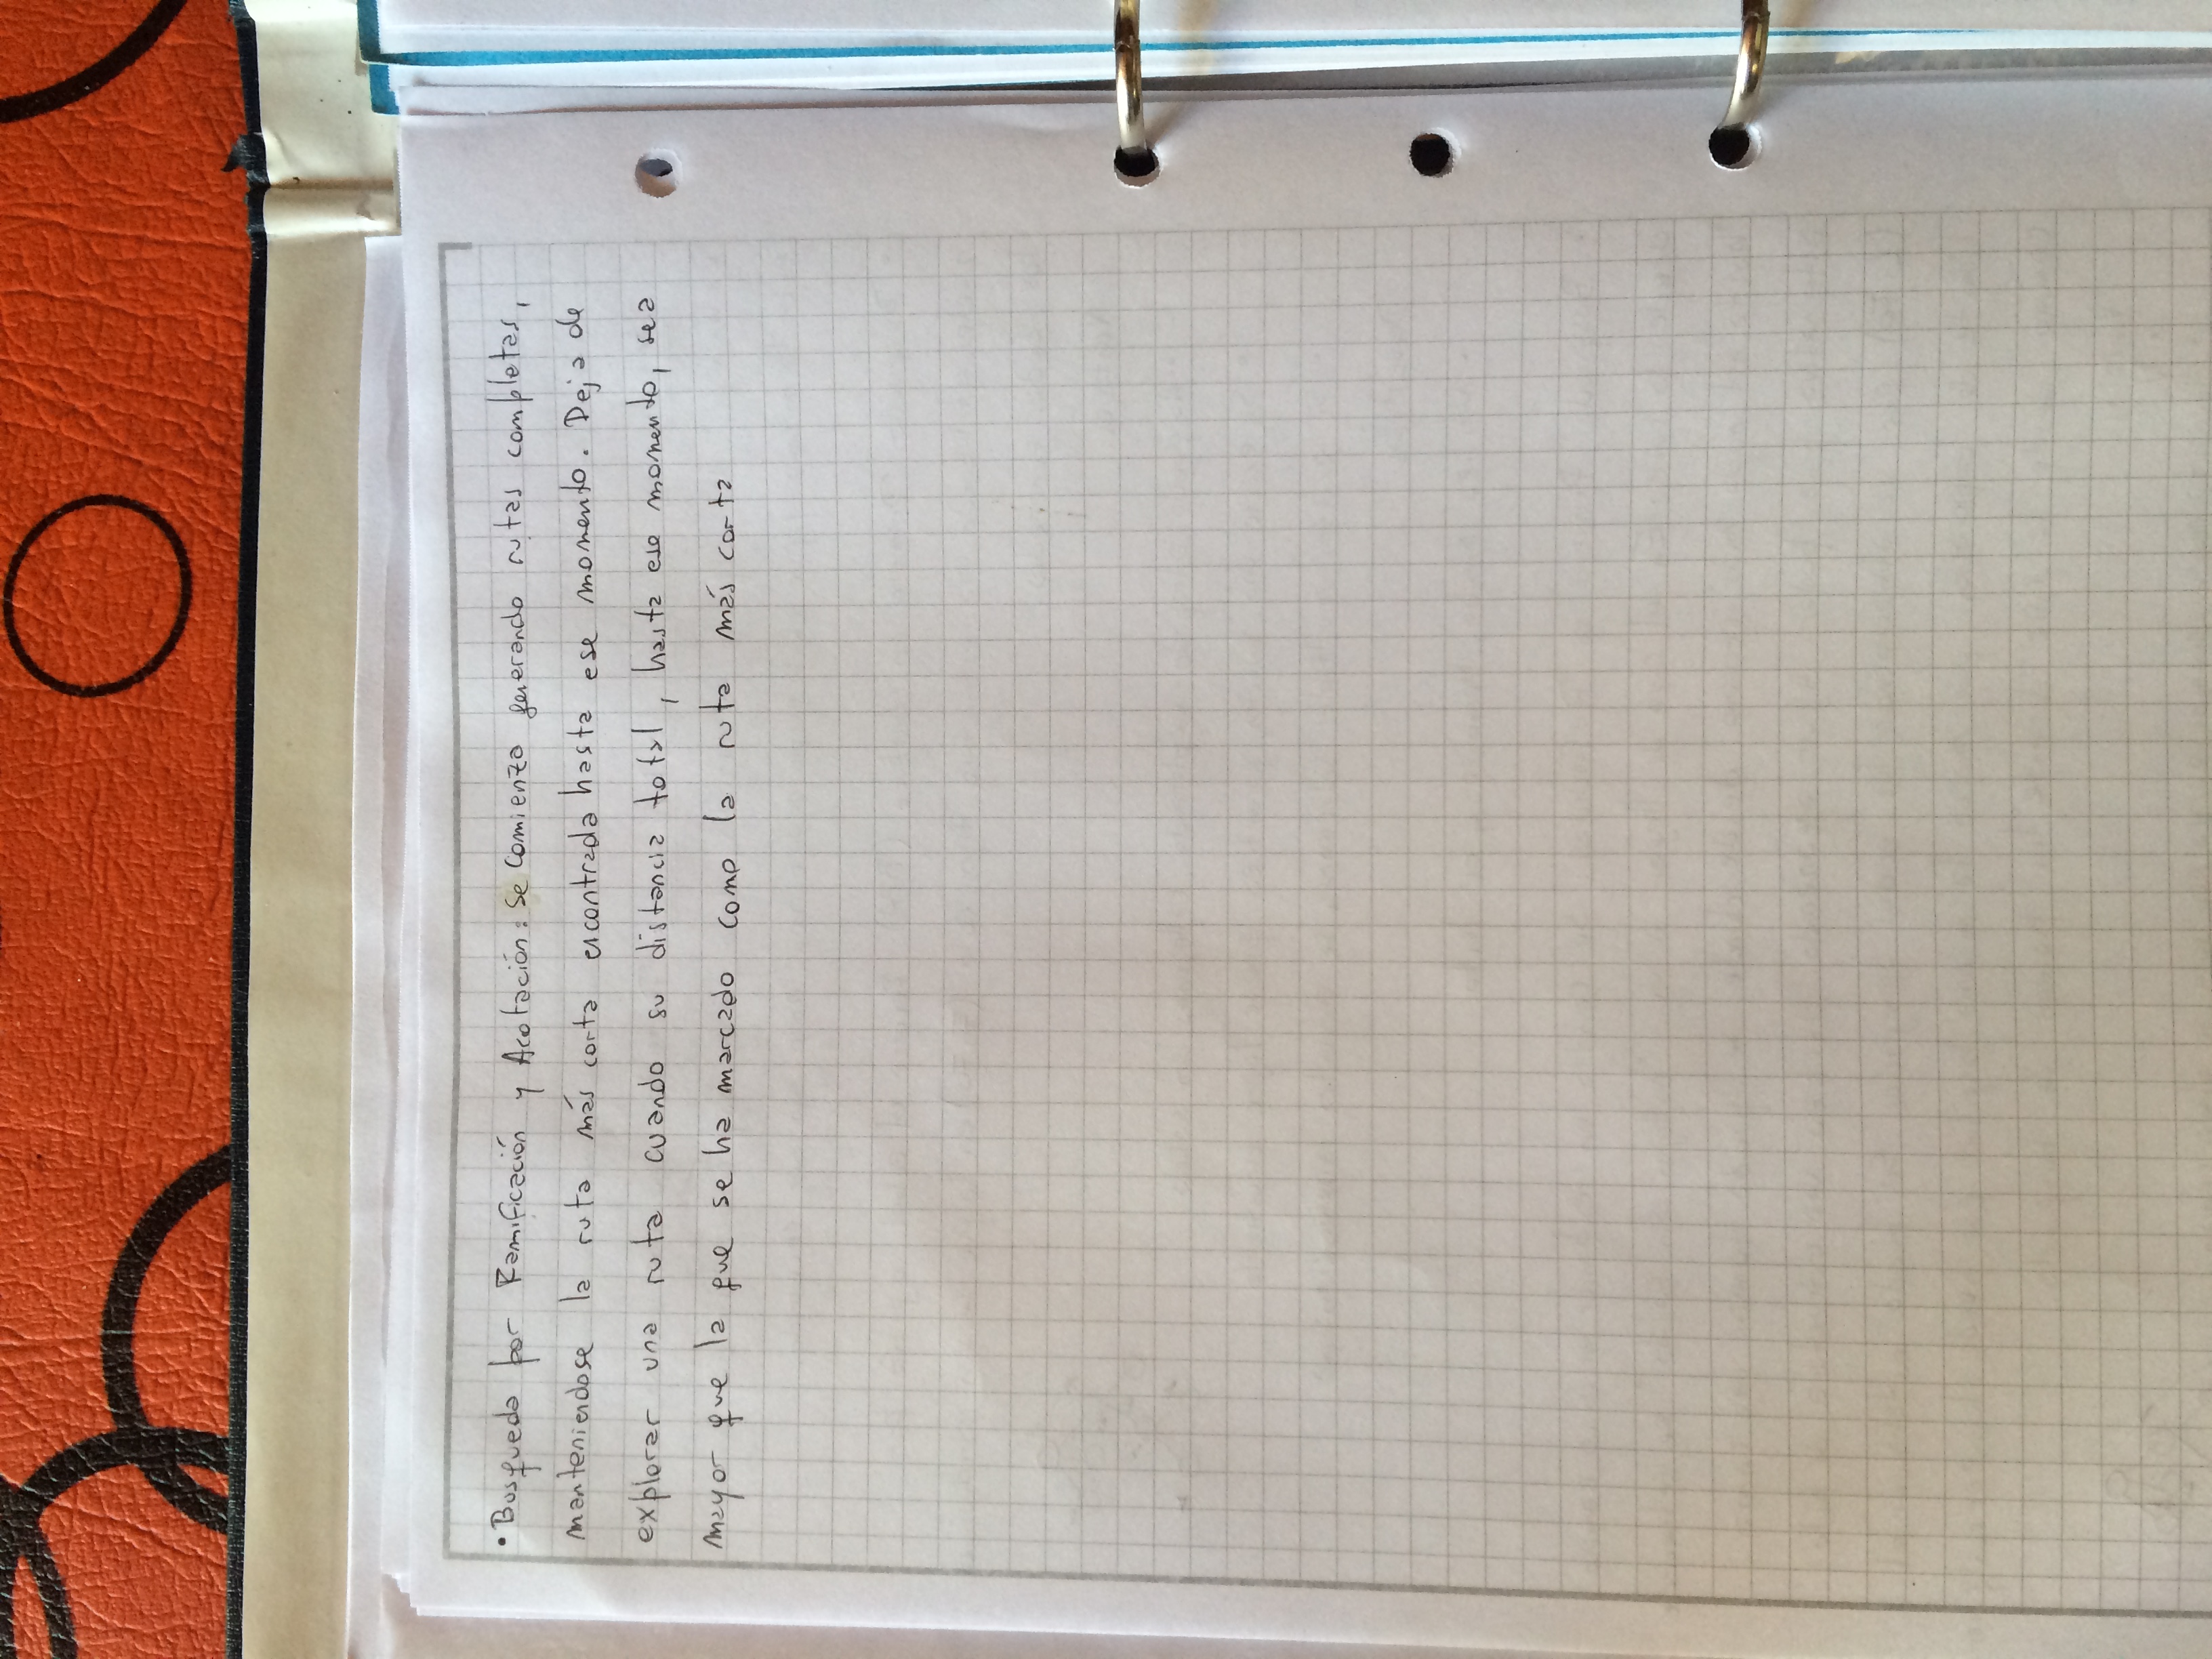 • Busqueda por Ramificación y Acotación: Se comienza generando rutas completas,
manteniendose la ruta más corta encontrada hasta ese momento. Deja de
explorar una ruta cuando su distancia total, hasta ese momento, sea
mayor que la que se ha marcado como la ruta más corta